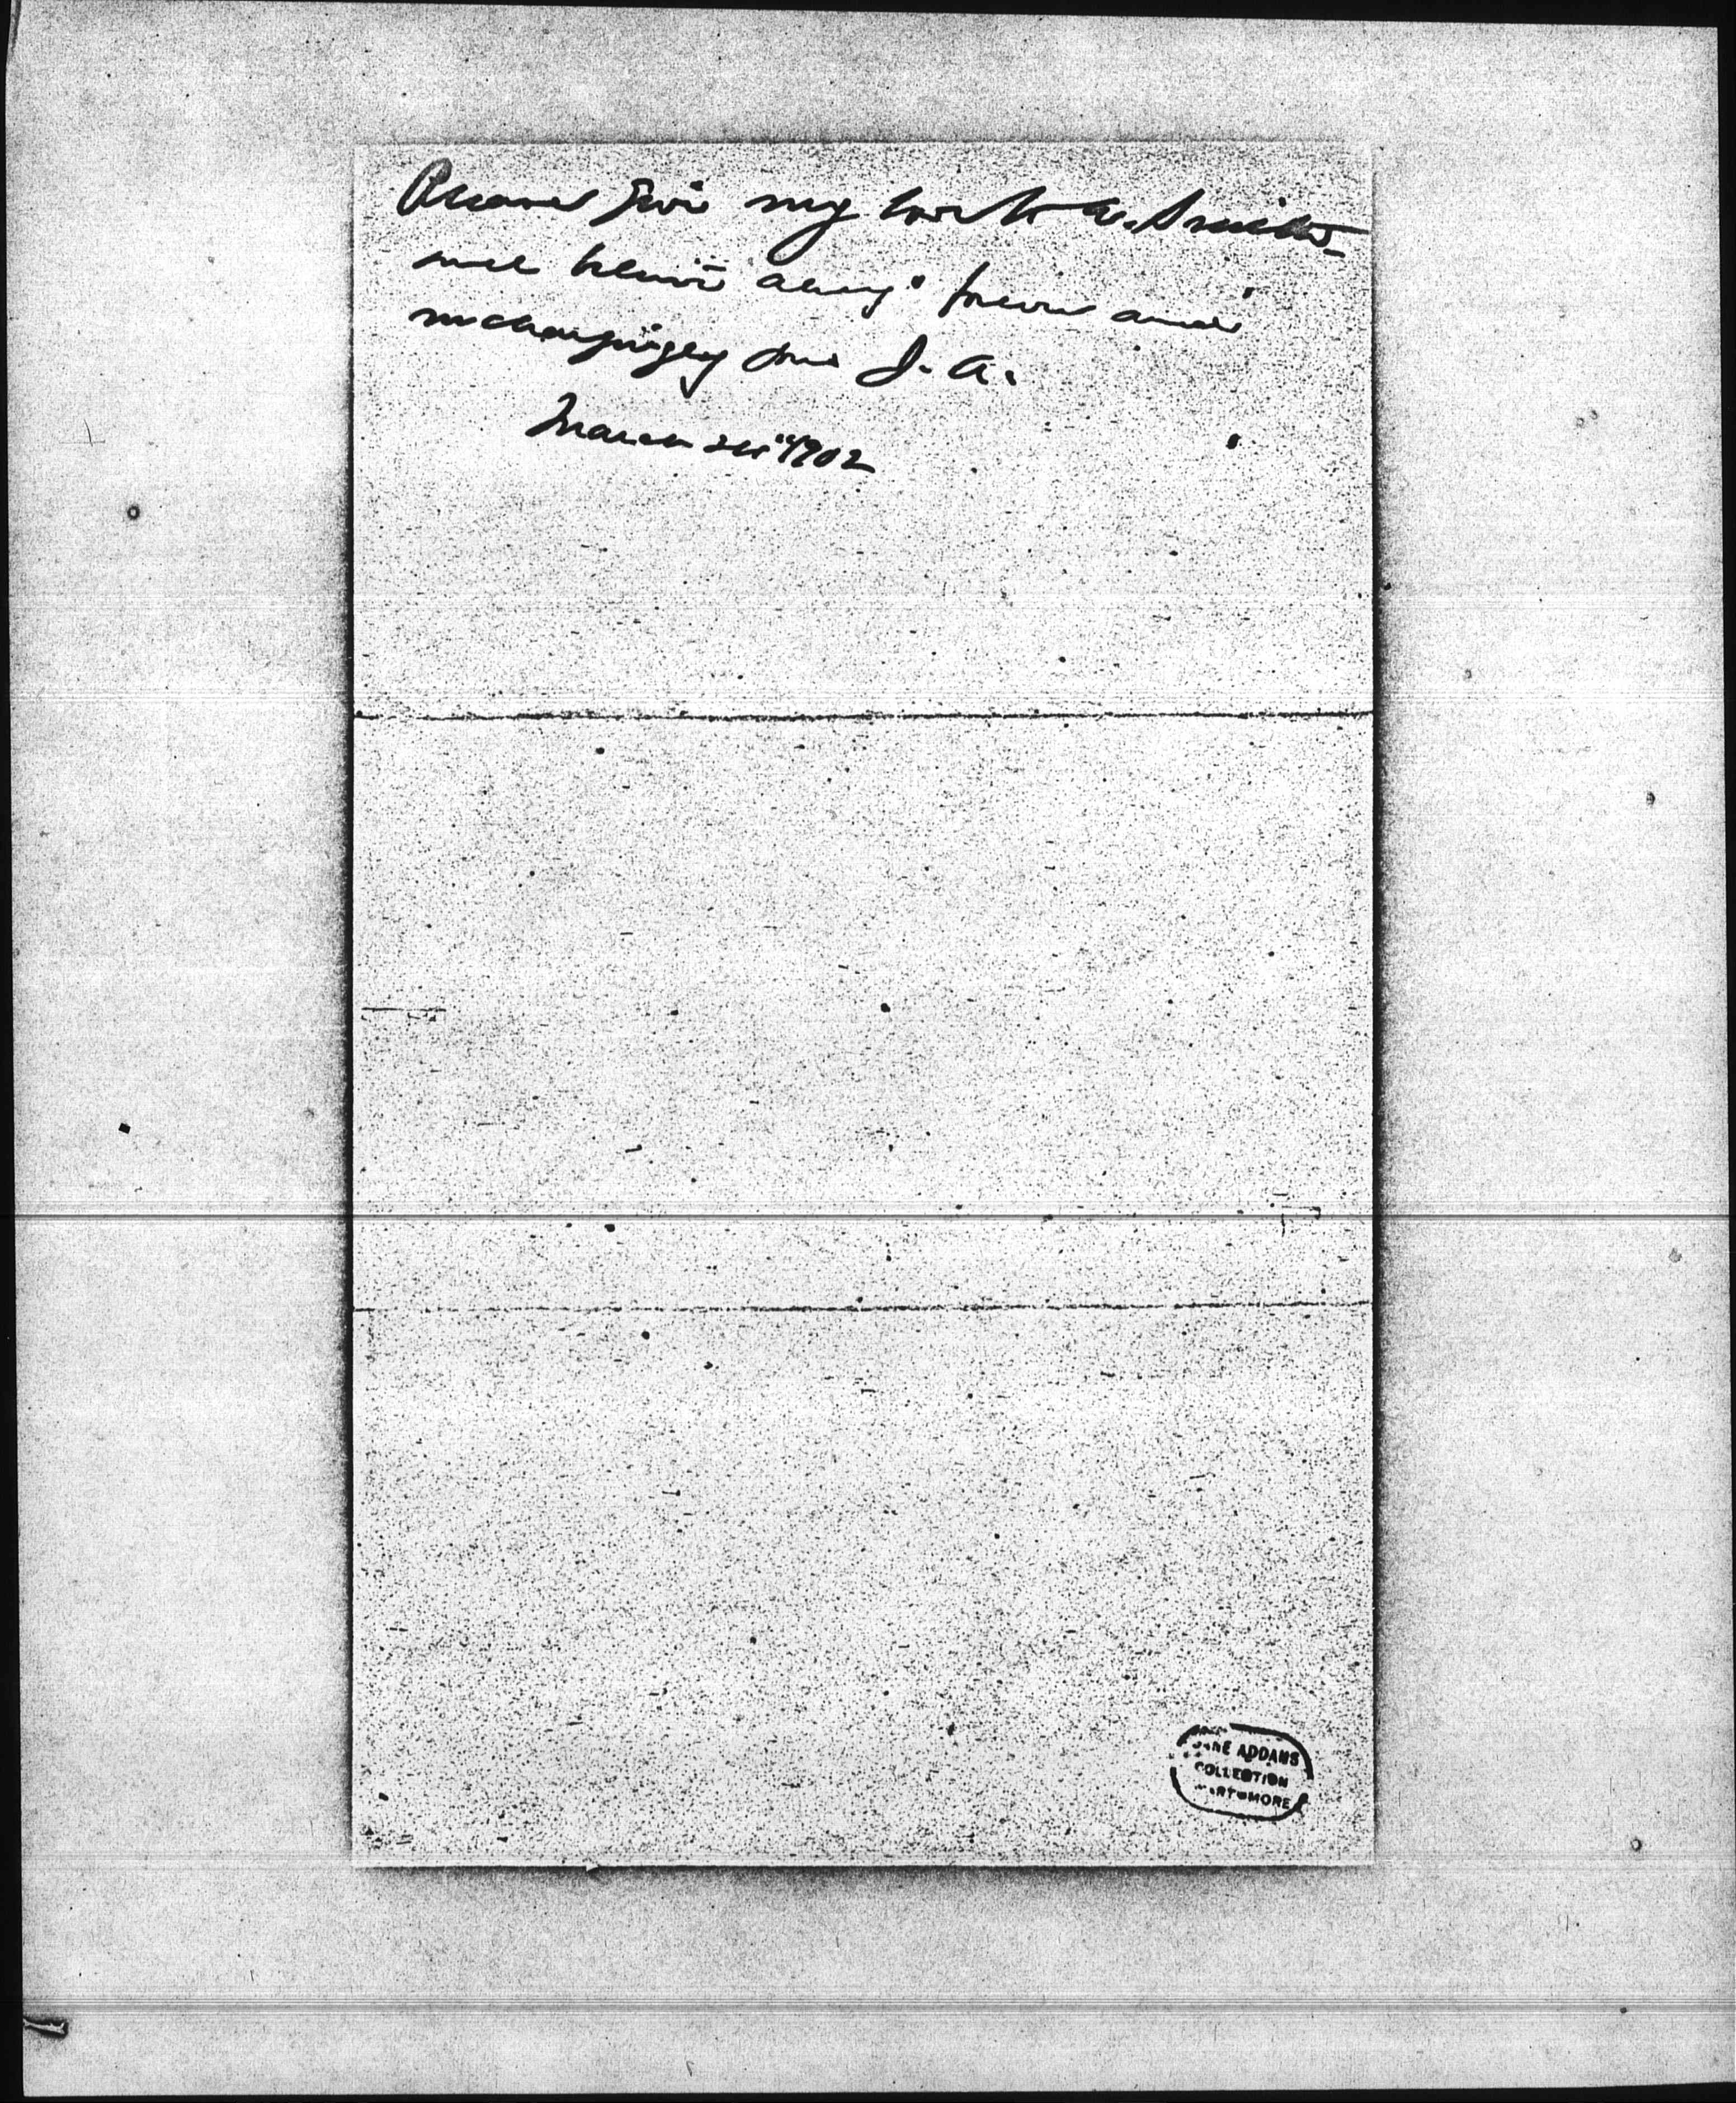 Please give my love to
and believe always forever and
unchangingly yours J. A.
March 1902
JANE ADDAMS
COLLECTION